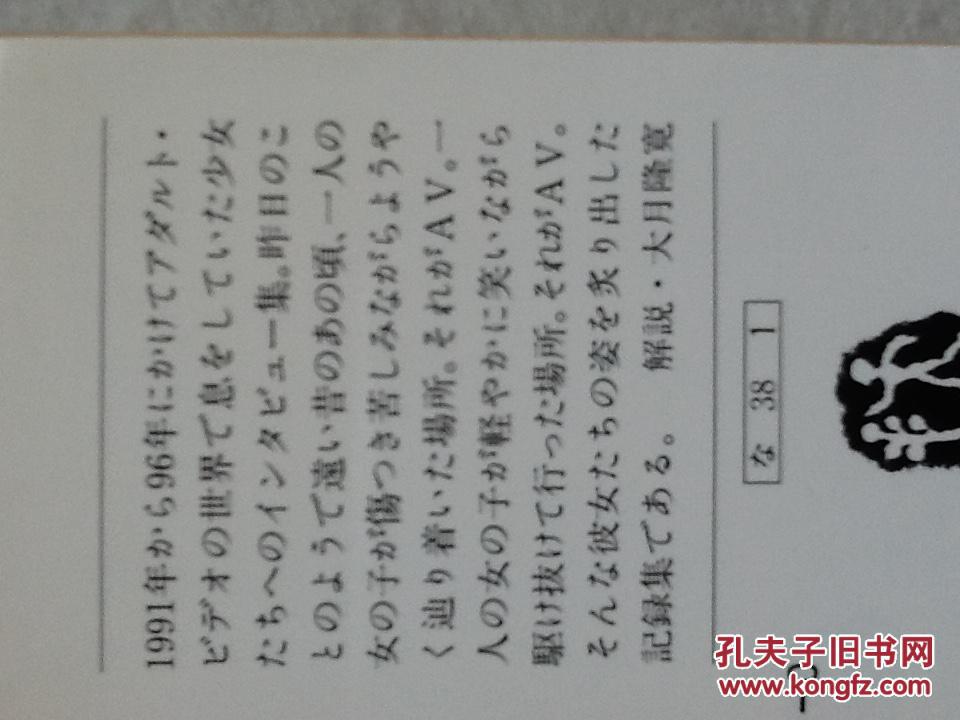 1991年から96年にかけてアダルト・
ビデオの世界で息をしていた少女
たちへのインタビュー集。昨日のこ
とのようで遠い昔のあの頃、一人の
女の子が傷つき苦しみながらようや
く辿り着いた場所。それがAV。一
人の女の子が軽やかに笑いながら
駆け抜けて行った場所。それがAV。
そんな彼女たちの姿を炙り出した
記録集である。 解説・大月隆寛
な 38 1
孔夫子旧书网
www.kongfz.com